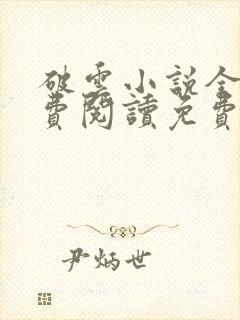 破雲小說全
費閱讀免費
尹炳世